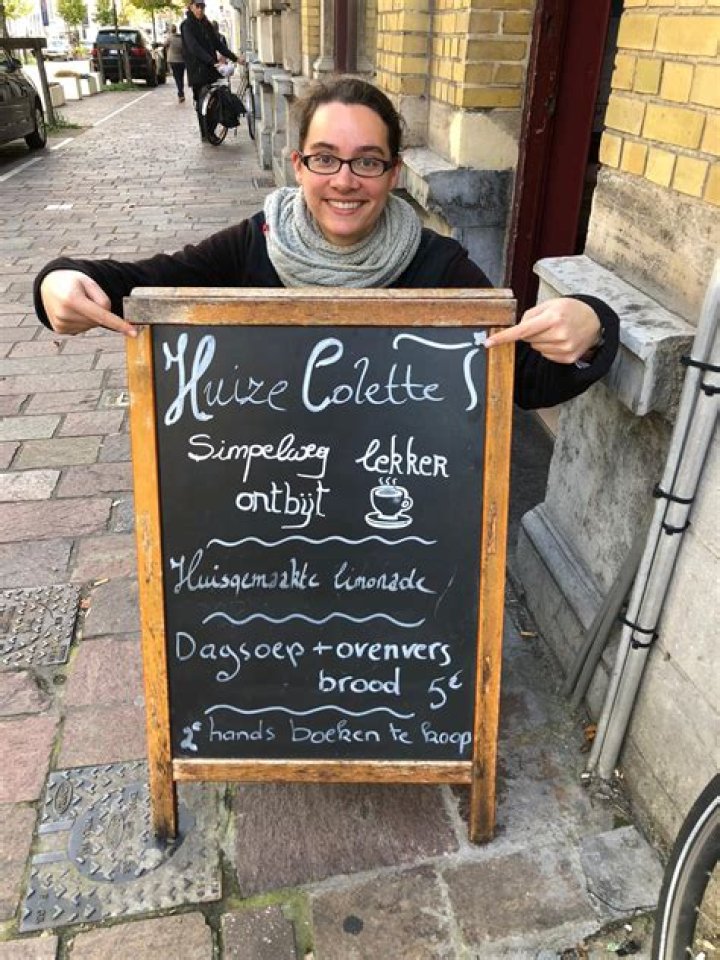 Huize Colette
Simpelweg lekker
ontbijt
Huisgemaakte limonade
Dagsoep + ovenvers
brood 5€
2e hands boeken te koop